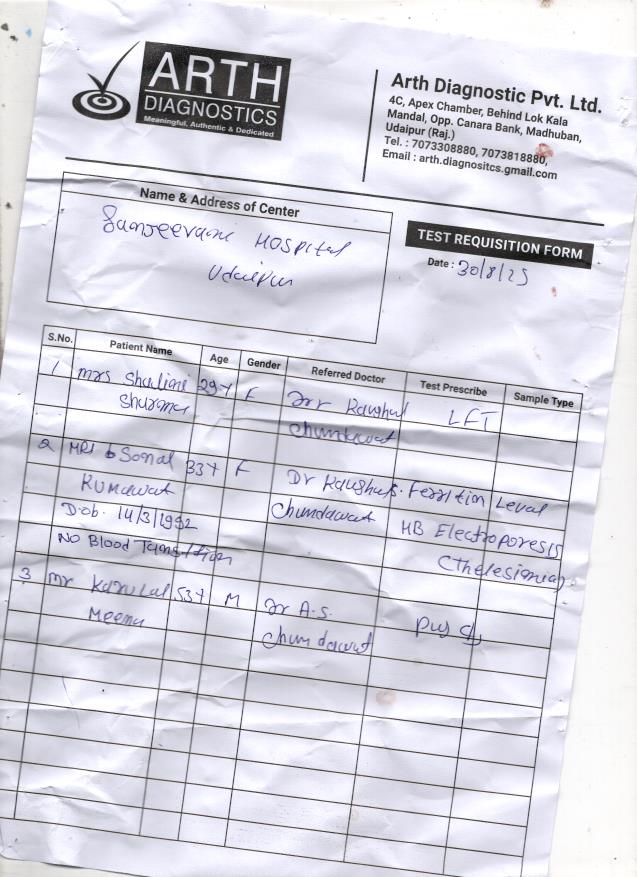 ARTH
DIAGNOSTICS
Meaningful, Authentic & Dedicated
Arth Diagnostic Pvt. Ltd.
4C, Apex Chamber, Behind Lok Kala
Mandal, Opp. Canara Bank, Madhuban,
Udaipur (Raj.)
Tel. : 7073308880, 7073818880,
Email : arth.diagnositcs.gmail.com
Name & Address of Center
Sanjeevani Hospital
Udaipur
TEST REQUISITION FORM
Date : 30/8/25
S.No. Patient Name Age Gender Referred Doctor Test Prescribe Sample Type
1 mrs Shalini 29 Y F Dr Kaushal LFT
Sharma Chundawat
2 MRS Sonal 33 Y F Dr Kaushal S. Ferrition Level
Kumawat Chundawat HB Electroporesis
D.o.b. 14/3/1992 (Thelesiemia)
No Blood
3 mr 53 Y M Dr A.S. Pus
Meena Chundawat